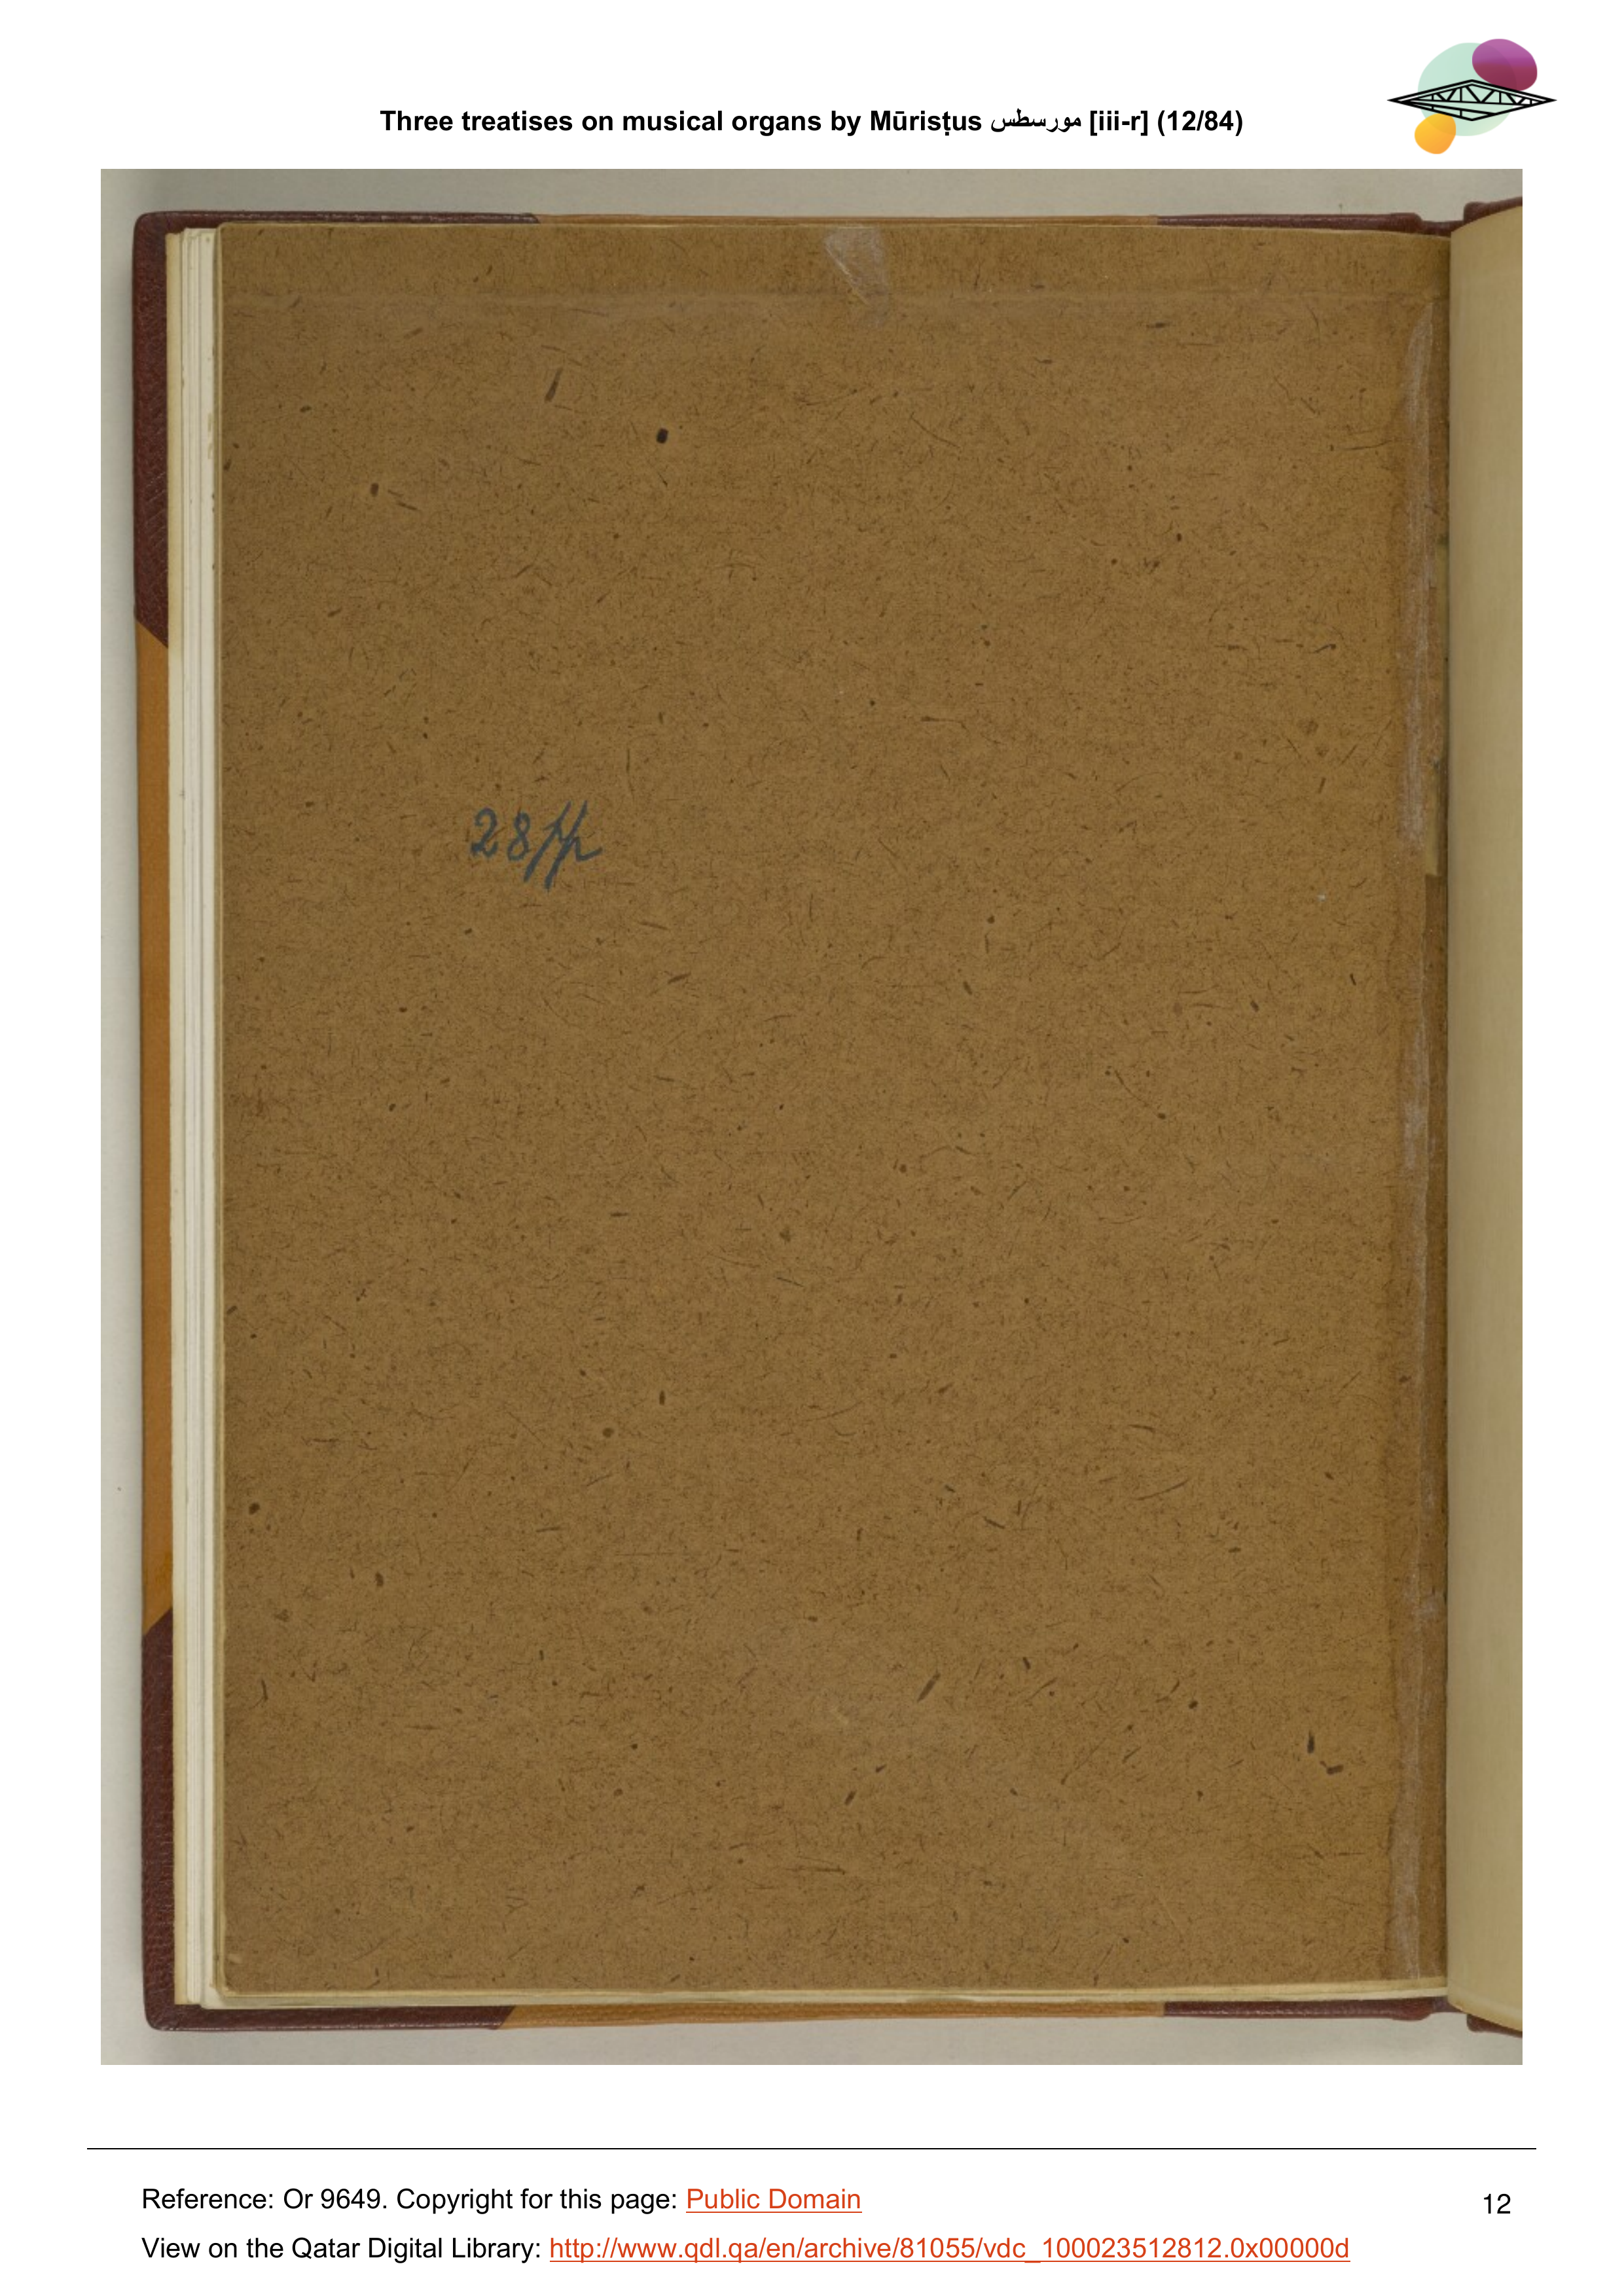 Three treatises on musical organs by Mūrisṭus مورسطس [iii-r] (12/84)
28pp
Reference: Or 9649. Copyright for this page: Public Domain
12
View on the Qatar Digital Library: http://www.qdl.qa/en/archive/81055/vdc_100023512812.0x00000d